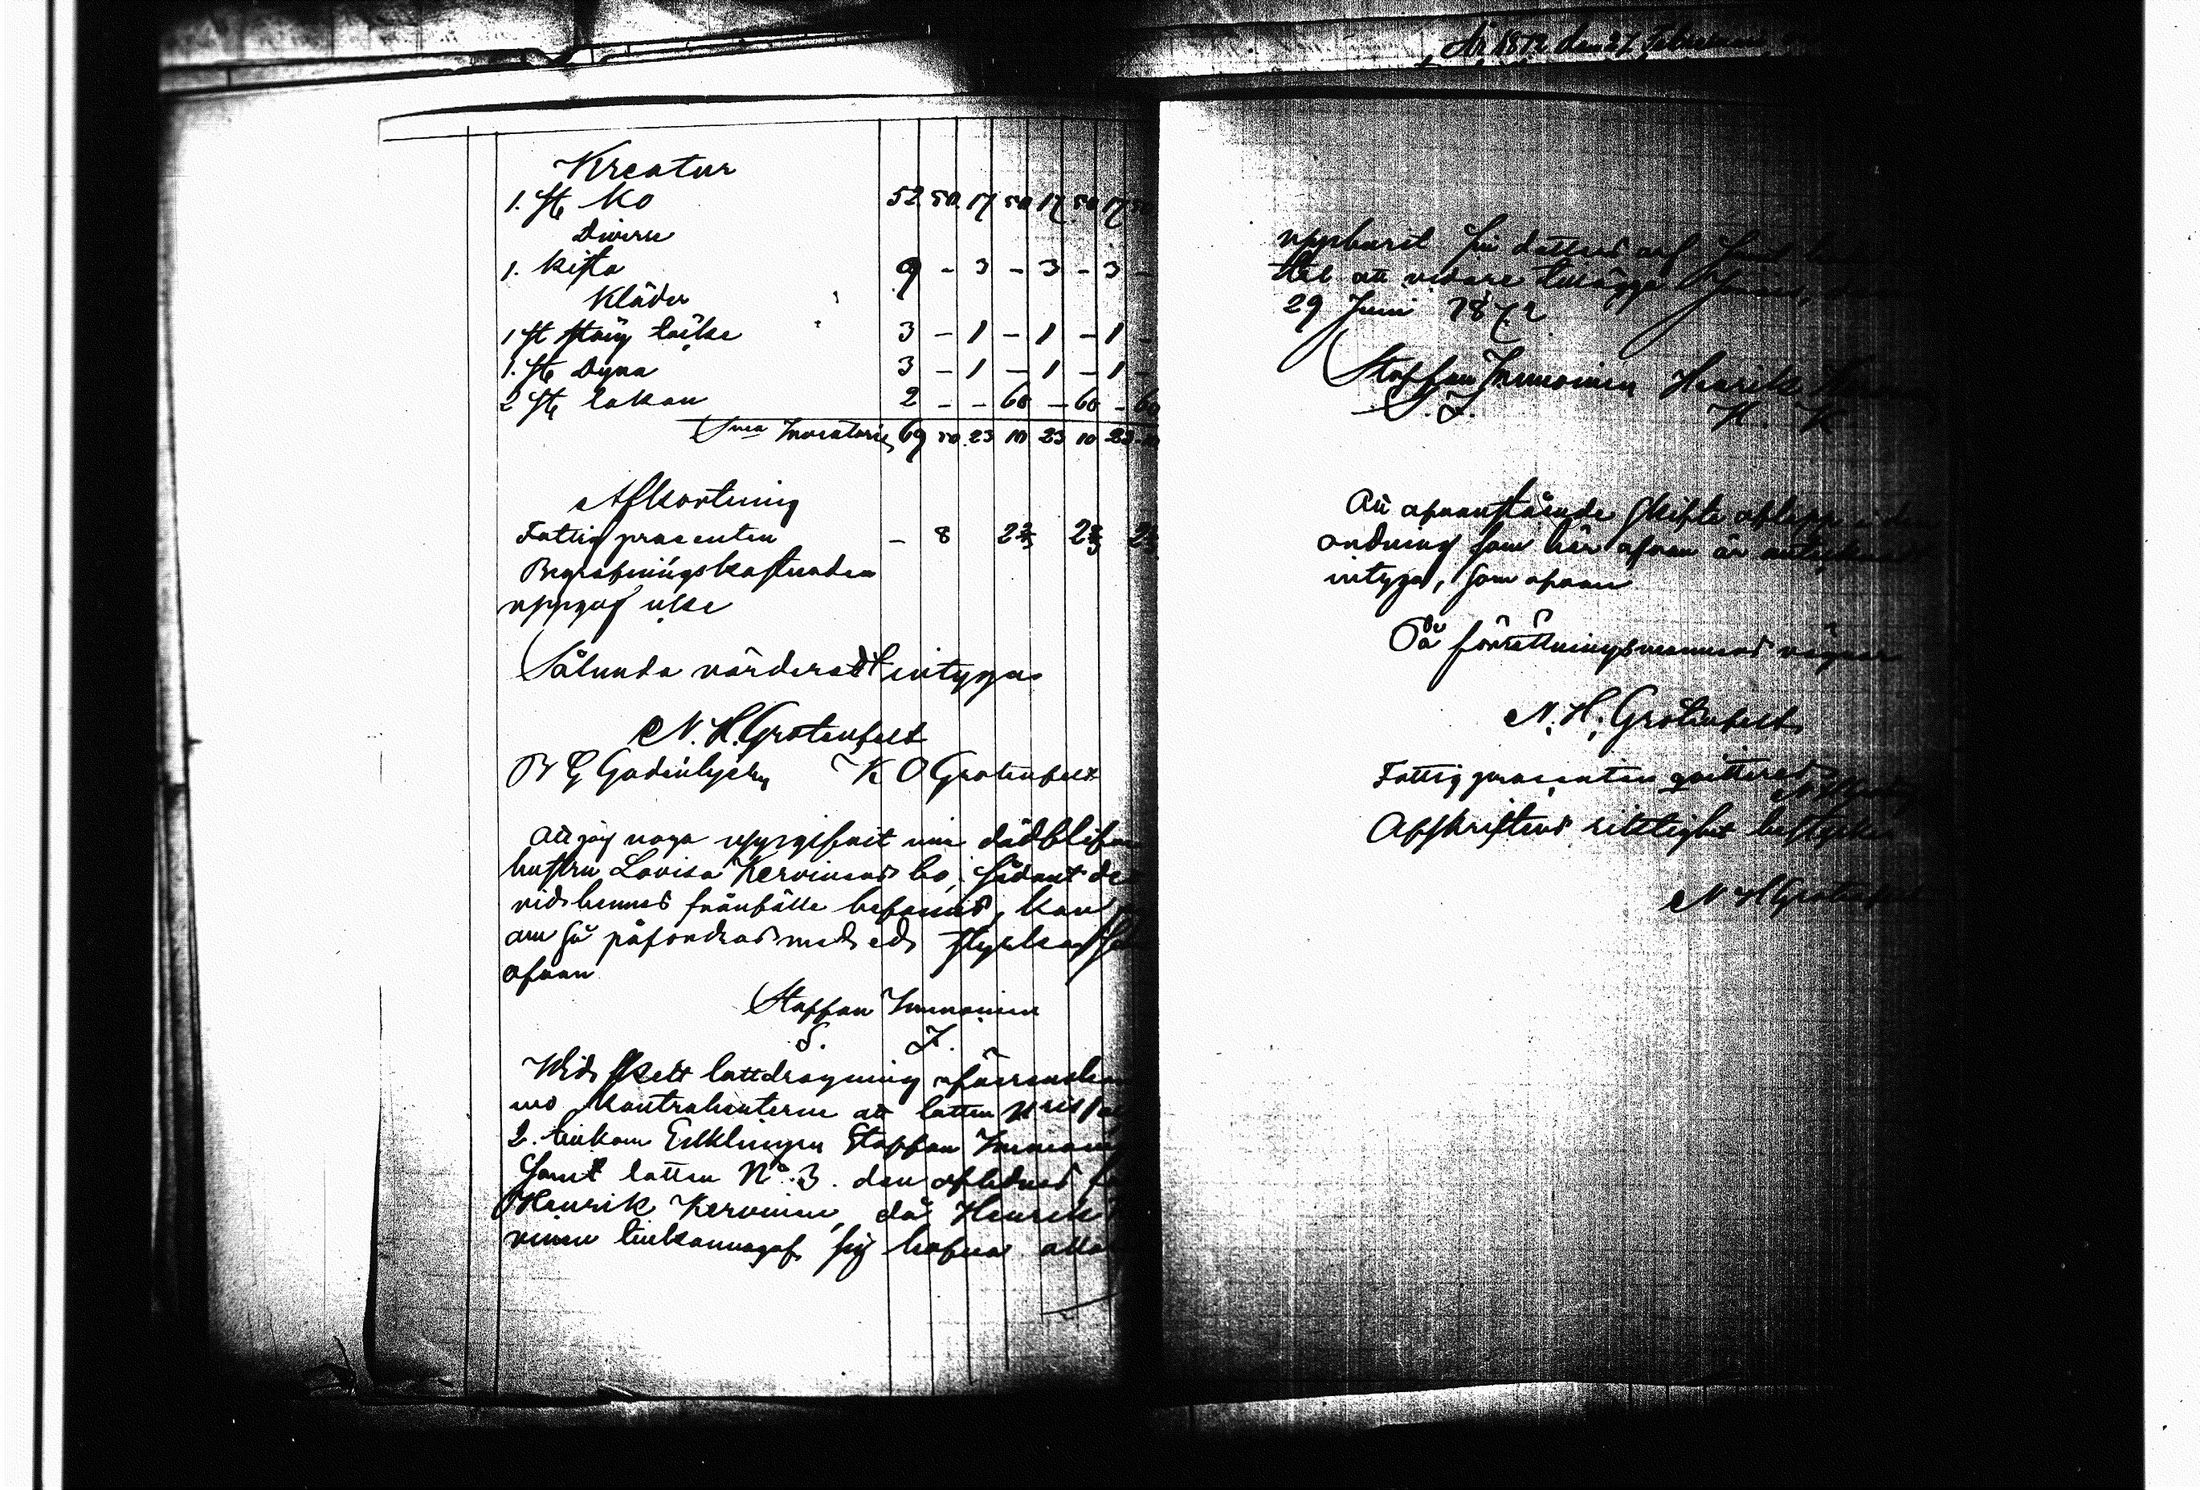 År 1872 den 27 Februari
Kreatur
1. st Ko 52 50 17 50 17 50 17 50
Diverse
1. kista 9 - 3 - 3 - 3 -
Kläder
1 st täcke 3 - 1 - 1 - 1 -
1. st Dyna 3 - 1 - 1 - 1 -
2 st lakan 2 - - 60 - 60 - 60
Sma Inventarie 69 50 23 10 23 10 23 10
Afkortning
Fattig procenten - 8 2 2/3 2 2/3 2 2/3
Begrafningskostnaden
uppgaf icke
Sålunda värderadt intyga
N. H. Grotenfelt
K O Grotenfelt
Att jag noga uppgifvit min död blifna
hustru Lovisa Kervinens bo, sådant det
vid hennes frånfälle befanns, kan
om så påfordras med ed styrkas
ofvan
Staffan Immoinen
S. I.
Wid skett lottdragning
kontrahenterne att lotten
2. tillkom Enklingen Staffan Immoinen
samt lotten No. 3. den aflidnes
Henrik Kervinen, då Henrik
vinen tillkännagaf sig hafva
uppburit sin dotters arf samt
att vidare tillägga
29 Juni 1872
Staffan Immoinen Henrik
S. I. H. K.
Att ofvanstående skifte aflupp i den
ordning som här ofvan är antecknadt
intyga, som ofvan
På förrättningsmannens vägnar
N. H. Grotenfelt
Fattigprocenten qvitteras
Afskriftens riktighet bestyrker
N H Grotenfelt